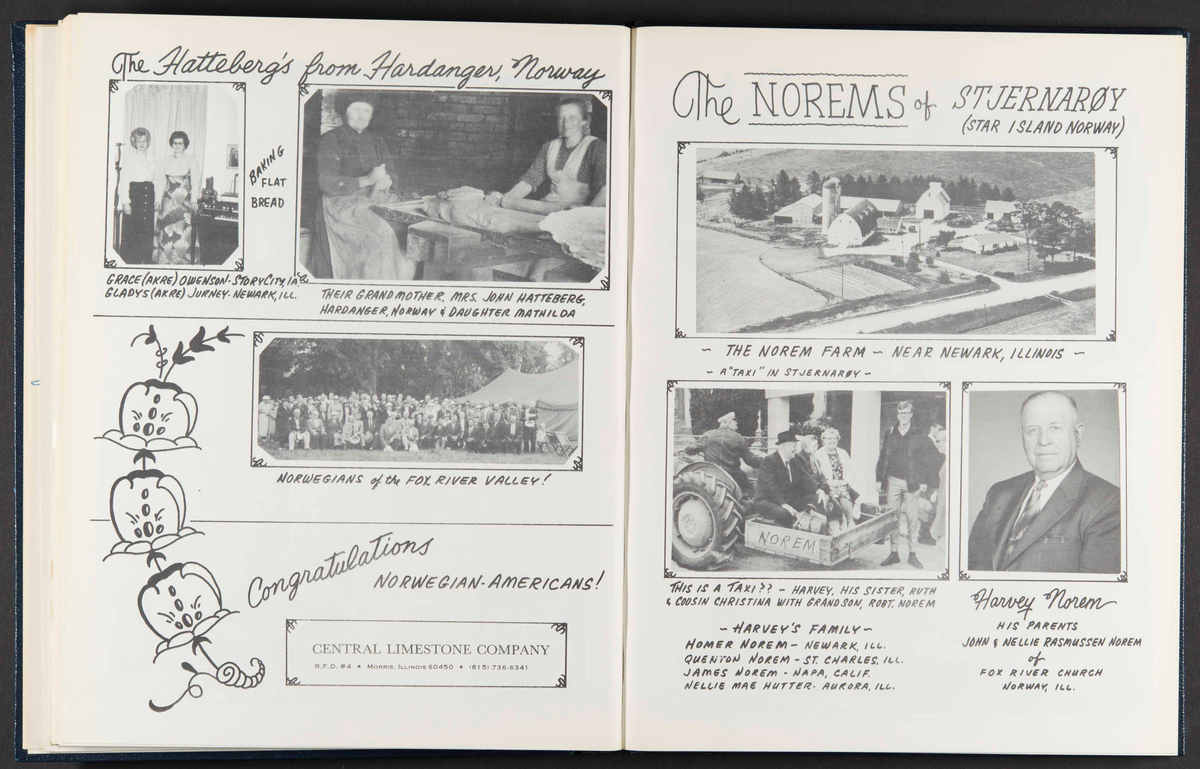 The Hatteberg's from Hardanger, Norway
BAKING
FLAT
BREAD
GRACE (AKRE) OWENSON-STORY CITY, IA. &
GLADYS (AKRE) JURNEY-NEWARK, ILL.
THEIR GRANDMOTHER, MRS. JOHN HATTEBERG,
HARDANGER, NORWAY & DAUGHTER MATHILDA
NORWEGIANS of the FOX RIVER VALLEY!
Congratulations
NORWEGIAN-AMERICANS!
CENTRAL LIMESTONE COMPANY
R.F.D. #4 • MORRIS, ILLINOIS 60450 • (815) 736-6341
The NOREMS of STJERNARØY
(STAR ISLAND NORWAY)
~ THE NOREM FARM ~ NEAR NEWARK, ILLINOIS ~
~ A "TAXI" IN STJERNARØY ~
NOREM
THIS IS A TAXI?? - HARVEY, HIS SISTER, RUTH
& COUSIN CHRISTINA WITH GRANDSON, ROBT. NOREM
~ HARVEY'S FAMILY ~
HOMER NOREM - NEWARK, ILL.
QUENTON NOREM - ST. CHARLES, ILL.
JAMES NOREM - NAPA, CALIF.
NELLIE MAE HUTTER - AURORA, ILL.
Harvey Norem
HIS PARENTS
JOHN & NELLIE RASMUSSEN NOREM
of
FOX RIVER CHURCH
NORWAY, ILL.